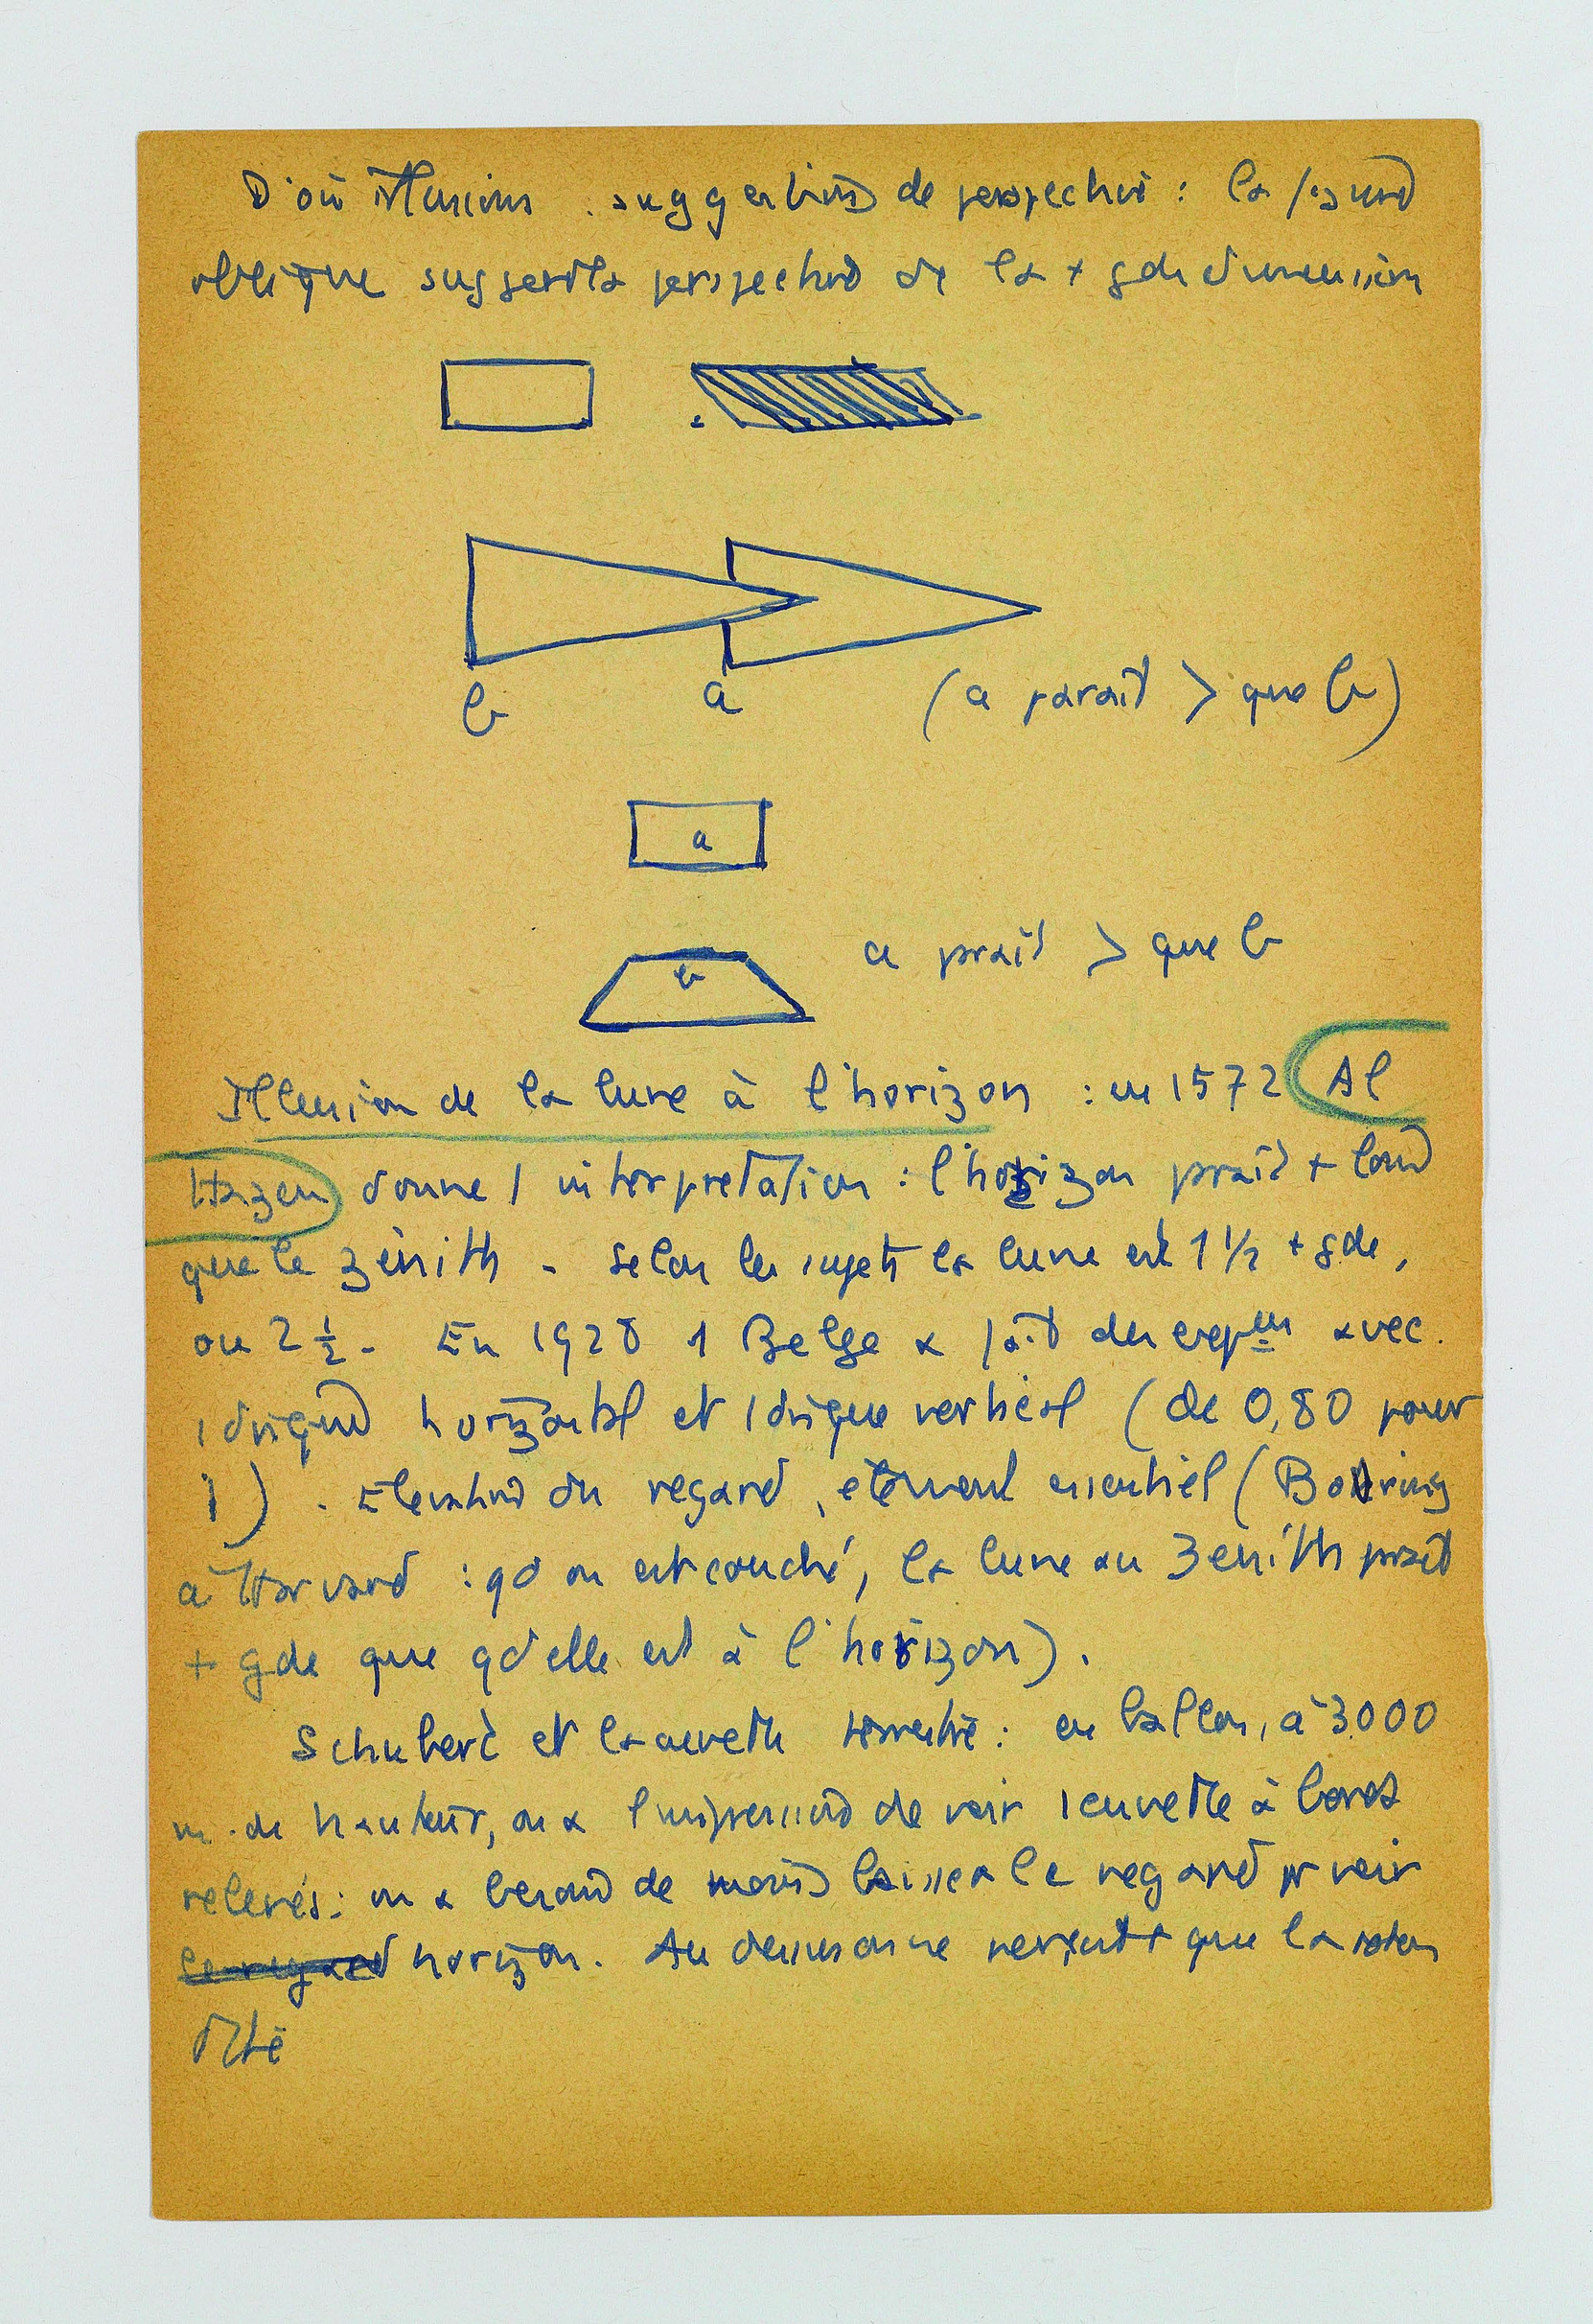 D'où illusions . suggestions de perspective : la
oblique suggère la perspective de la + gde dimension
b a (a parait > que b)
a
b a prait > que b
Illusion de la lune à l'horizon : en 1572 Al
Hazen donne 1 interprétation : l'horizon prait + loin
que le zénith - Selon les sujets la lune est 1 1/2 + gde,
ou 2 1/2 - En 1928 1 Belge a fait des avec
1 horizontal et 1 vertical (de 0,80 pour
1) . Elevation du regard, élément essentiel (Boring
à Harvard : qd on est couché, la lune au Zénith prait
+ gde que qd elle est à l'horizon).
Schubert et la cuvette terrestre : en ballon, à 3000
m. de hauteur, on a l'impression de voir 1 cuvette à bords
relevés : on a besoin de moins baisser le regard pr voir
le regard horizon. Au dessus on ne voit + que la